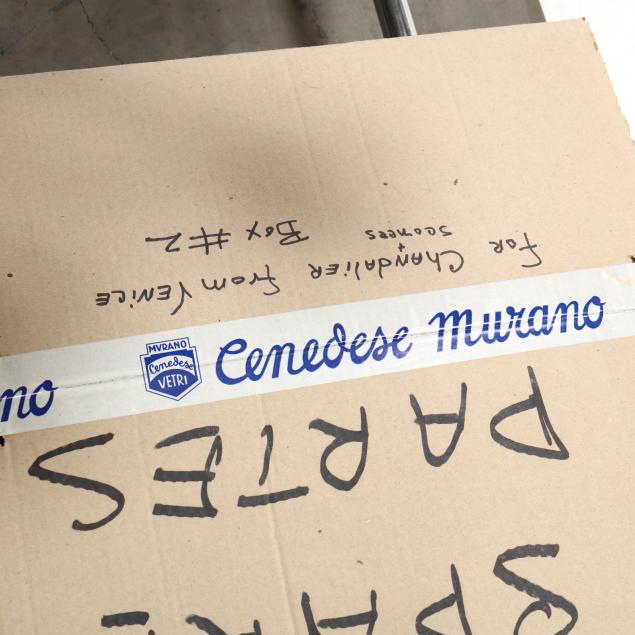 SPARE
PARTES
no Cenedese Murano
MVRANO
Cenedese
VETRI
FOR CHANDALIER FROM VENICE
+
SCONCES BOX #2